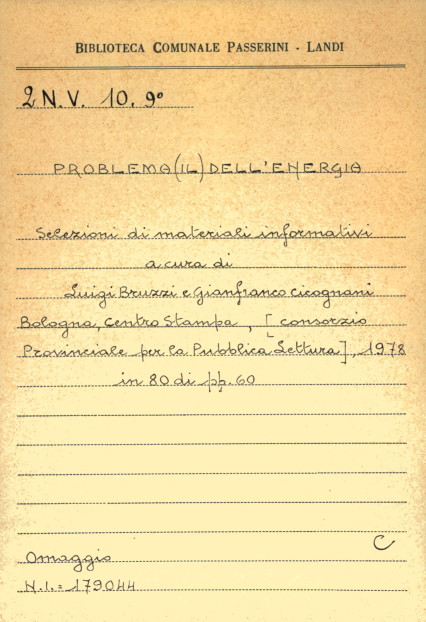 BIBLIOTECA COMUNALE PASSERINI - LANDI
2 N.V. 10. 9º
PROBLEMA (IL) DELL'ENERGIA
Selezioni di materiali informativi
a cura di
Luigi Bruzzi e Gianfranco Cicognani
Bologna, Centro Stampa, [consorzio
Provinciale per la Pubblica Lettura], 1978
in 80 di pp. 60
C
Omaggio
N.I.= 179044